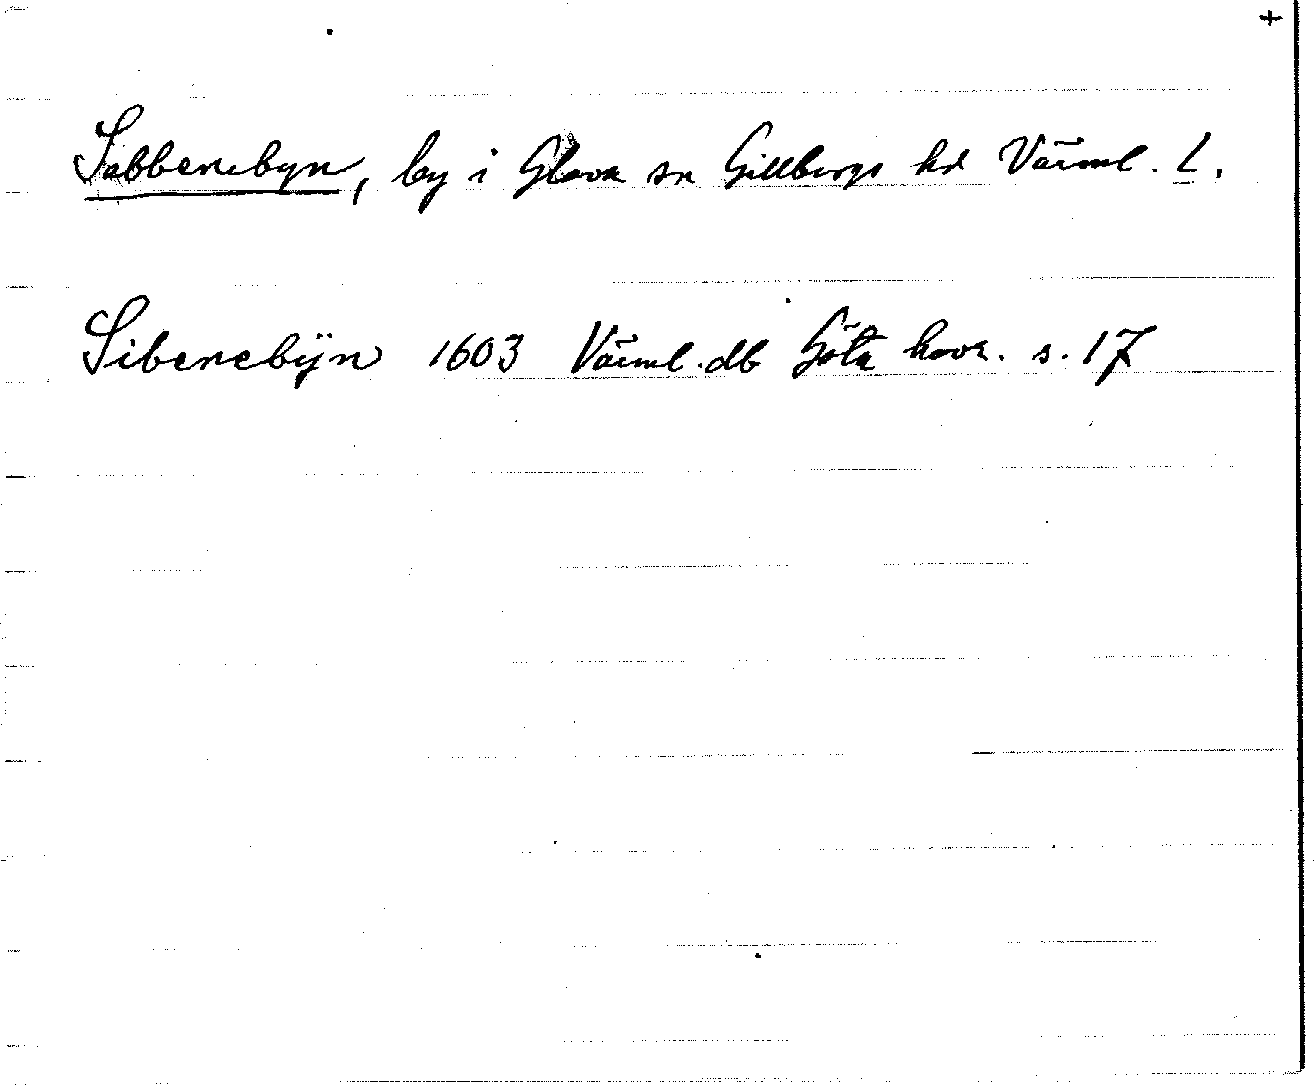 +
Sabbenebyn, by i Glava sn Gillbergs hd Värml. L.
Sibenebÿn 1603 Värml. db Göta hovr. s. 17